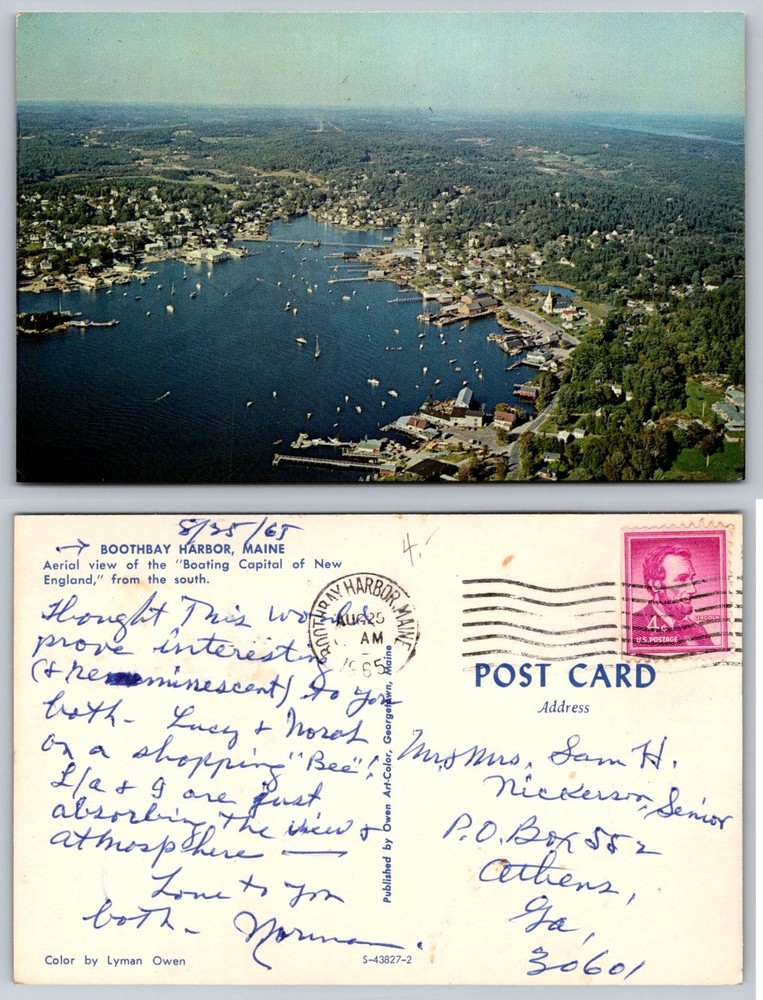 8/25/65
→ BOOTHBAY HARBOR, MAINE
Aerial view of the "Boating Capital of New
England," from the south.
Thought This would
prove interesting
(& reminescent) to you
both - Lucy & Norah
on a shopping "Bee"!
& I are just
absorbing the view &
atmosphere —
Love to you
both - Norman.
Color by Lyman Owen
S-43827-2
Published by Owen Art-Color, Georgetown, Maine
4.-
BOOTHBAY HARBOR, MAINE
AUG 25
AM
1965
4¢
LINCOLN
U.S. POSTAGE
POST CARD
Address
Mr & Mrs. Sam H.
Nickerson, Senior
P.O. Box 552
Athens,
Ga,
30601